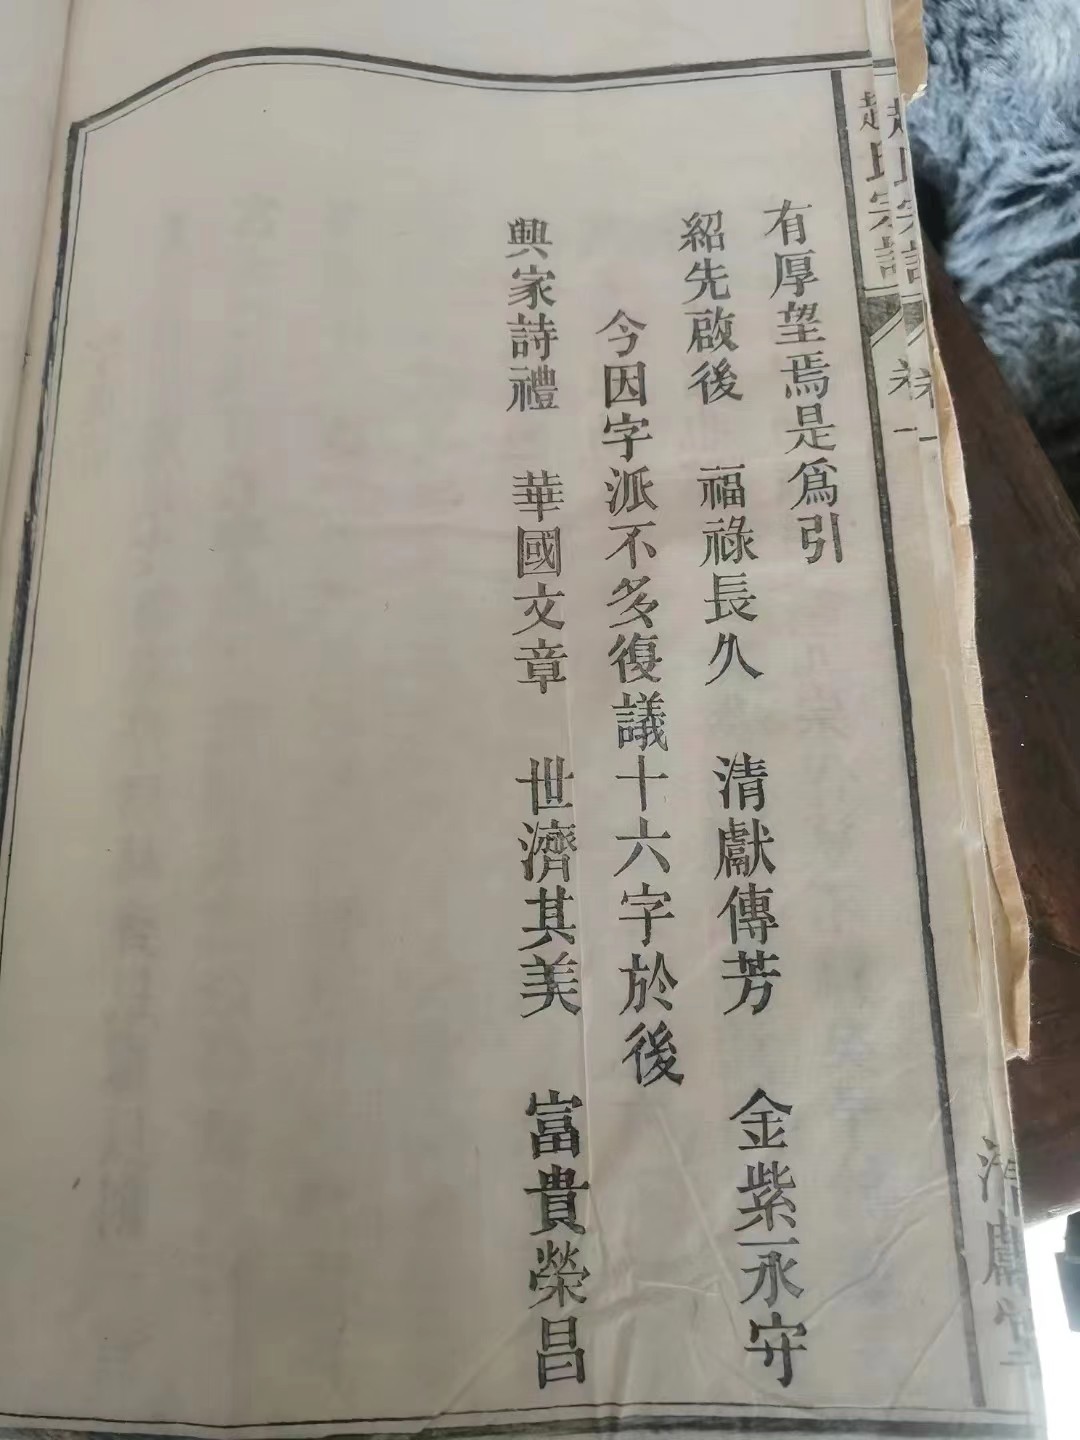 趙氏宗譜
卷一
清獻堂
有厚望焉是爲引
紹先啟後 福祿長久 清獻傳芳 金紫永守
今因字派不多復議十六字於後
興家詩禮 華國文章 世濟其美 富貴榮昌